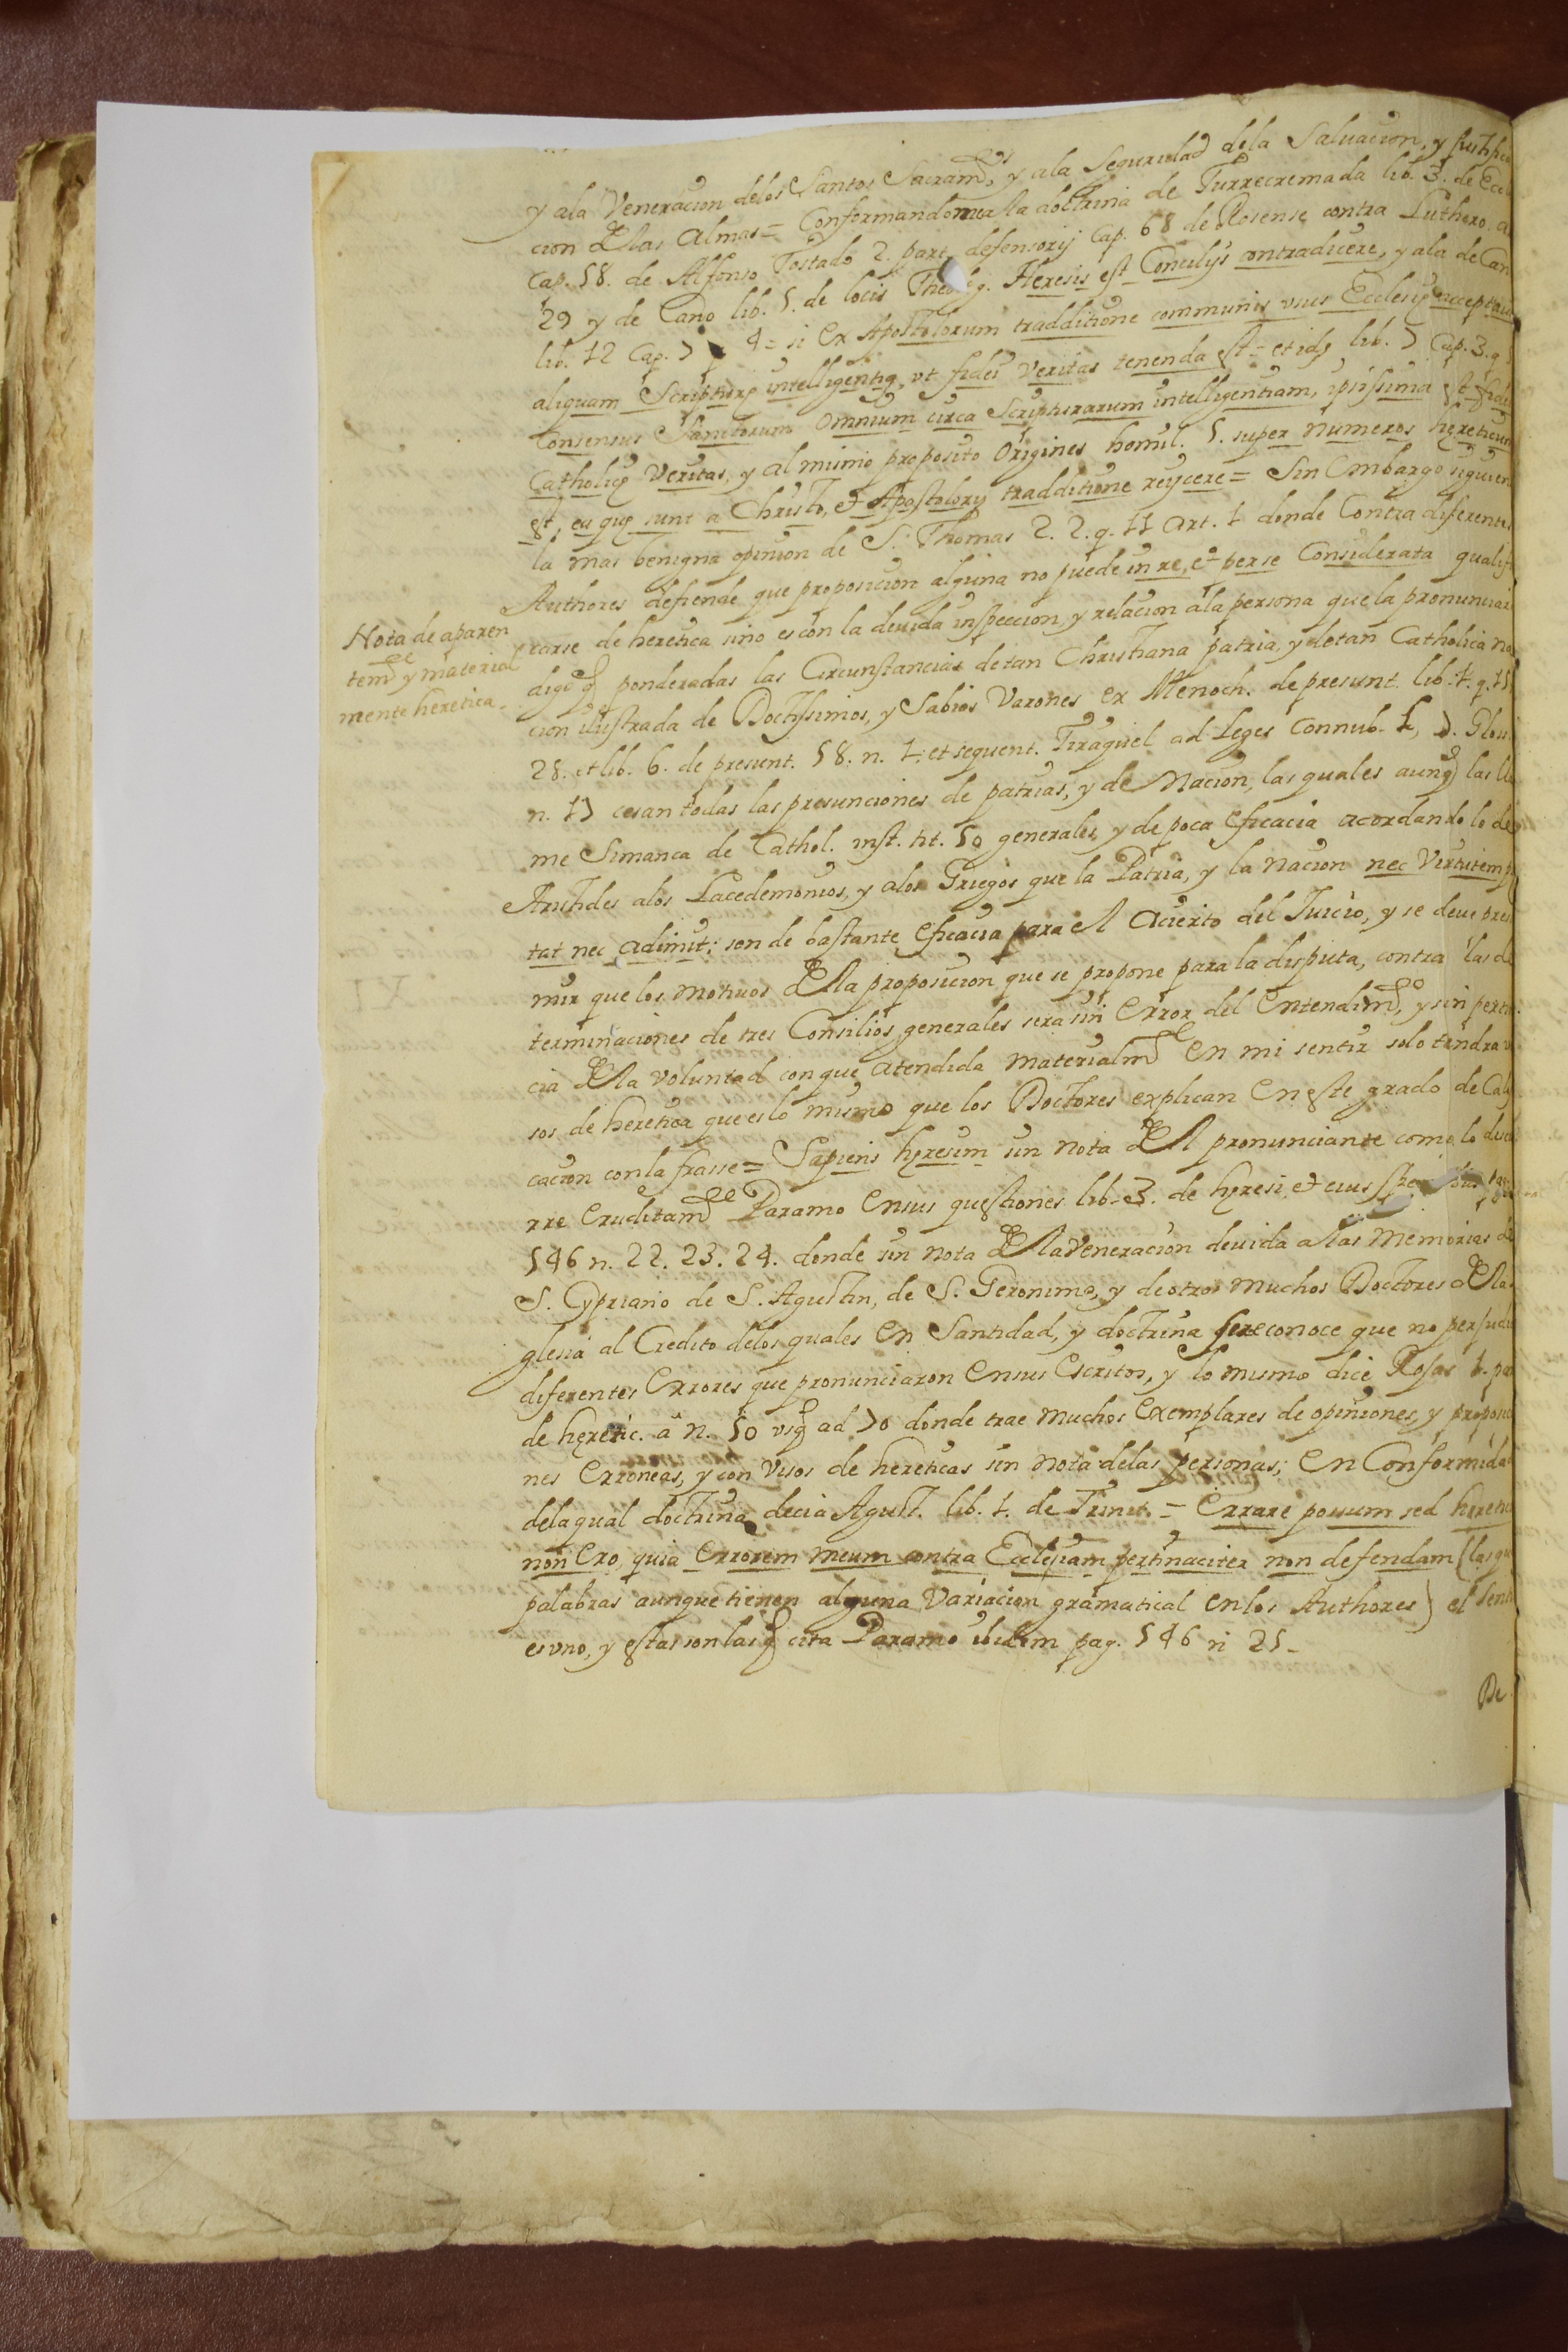 y ala Veneracion delos Santos Sacram.tos y ala Seguridad dela Salvacion, y Justifica
cion dlas Almas = Conformandome a la doctrina de Turrecremada lib. 3. de Eccl
Cap. 58. de Alfonso Tostado 2. part. defensorij Cap. 68 de Rosense contra Luthero. a
29 y de Cano lib. 5. de locis Theolog. Heresis est Concilijs contradicere, y ala de Can
lib. 12 Cap. 7 4 = si ex Apostolorum tradditione communis usus Ecclesię acceptavit
aliquam Scripturę intelligentię, ut fidei veritas tenenda est = et idę lib. 7 Cap. 3. q
Consensus Sanctorum Omnium circa Scripturarum intelligentiam, ipsissima est fidei
Catholicę Veritas, y al mismo proposito Origines homil. 5. super numeros hęreticum
est, ea quę sunt a Christo, et Apostolorũ tradditione reijcere = Sin Embargo siguien
la mas benigna opinion de S. Thomas 2. 2. q. 11 art. 1 donde Contra diferentes
Authores defiende que proposicion alguna no puede in re, et per se Considerata qualifi
Nota de aparen
tem.te y material
mente heretica.
carse de heretica sino es con la devida inspeccion, y relacion a la persona que la pronunciare
digo q ponderadas las Circunstancias de tan Christiana patria, y de tan Catholica na
cion ilustrada de Doctissimos, y Sabios Varones ex Menoch. de presunt. lib. 1. q. 15
28. et lib. 6. de presunt. 58. n. 1. et sequent. Tiraquel ad Leges Connub. L, 7. Glos.
n. 17 cesan todas las presunciones de patrias, y de Nacion, las quales aunq las lla
me Simanca de Cathol. inst. tit. 50 generales, y de poca Eficacia acordando lo de
Aristides alos Lacedemonios, y alos Griegos que la Patria, y la nacion nec Virtutem p
tat nec adimit; son de bastante Eficacia para el Acierto del Juicio, y se deve presu
mir que los motivos dela proposicion que se propone para la disputa, contra las de
terminaciones de tres Consilios generales sera sin Error del Entendim.to, y sin pertina
cia dela voluntad con que atendida materialm.te En mi sentir solo tendra vi
sos de heretica que es lo mismo que los Doctores explican En este grado de Calif
cacion con la frasse = Sapiens hęresim sin nota del pronunciante como lo discu
rre Eruditam.te Paramo En sus questiones lib. 3. de hęresi, et eius pag.
546 n. 22. 23. 24. donde sin nota dela Veneracion devida a las Memorias de
S. Cypriano de S. Agustin, de S. Geronimo, y de otros muchos Doctores dela
glesia al Credito delos quales En Santidad, y doctrina se reconoce que no perjudi
diferentes Errores que pronunciaron En sus Escritos, y lo mismo dice Rojas 1. par
de hęretic. â n. 50 usq ad 70 donde trae muchos Exemplares de opiniones, y proposi
nes Erroneas, y con Visos de hereticas sin nota delas personas; En Conformidad
dela qual doctrina decia Agust. lib. 1. de Trinit. = Errare possum sed hęretic
non Ero, quia Errorem meum contra Ecclesiam pertinaciter non defendam (las qu
palabras aunque tienen alguna Variacion gramatical En los Authores) el Senti
es uno, y estas son las q cita Paramo ibidem pag. 546 n 25_
De